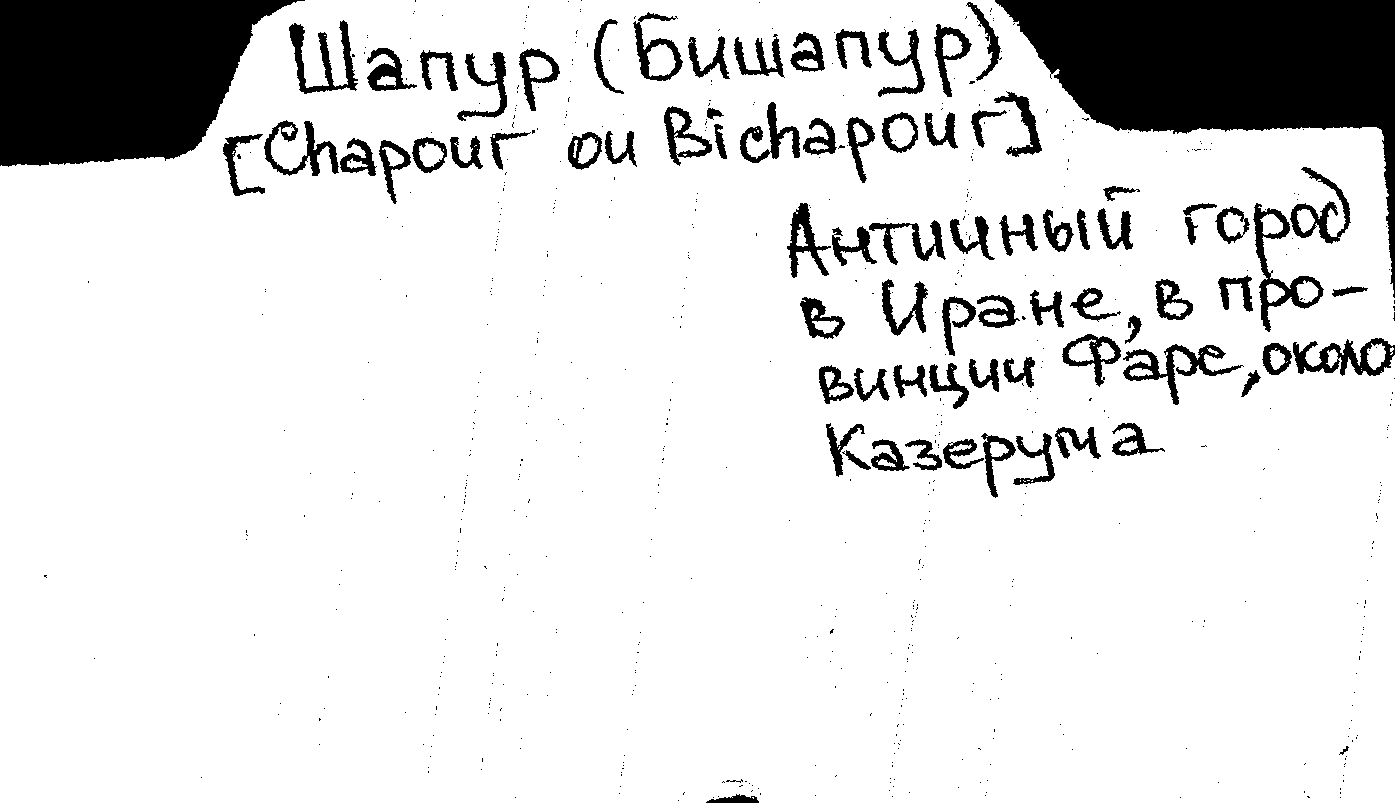 Шапур (Бишапур)
[Chapour ou Bichapour]
Античный город
в Иране, в про-
винции Фарс, около
Казерума